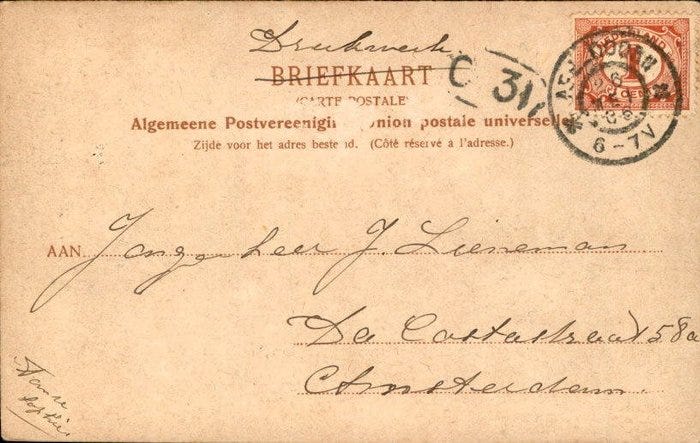 Drukwerk.
BRIEFKAART
(CARTE POSTALE)
Algemeene Postvereenigin nion postale universelle
Zijde voor het adres bestemd. (Côté réservé à l'adresse.)
C 31
NEDERLAND
1
CENT
6-7V
AAN Jongeheer J. Lieneman
Da Costastraat 158a
Amsterdam.